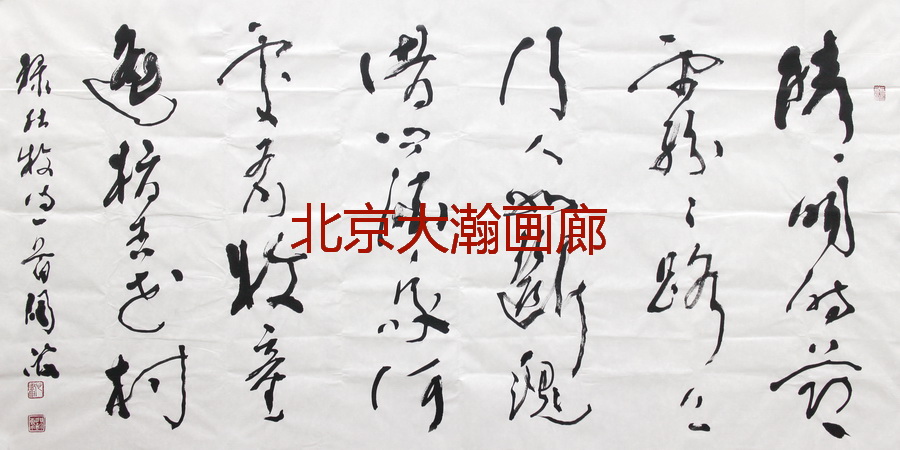 清明时节
雨纷纷路上
行人欲断魂
借问酒家何
处有牧童
遥指杏花村
录杜牧诗一首
北京大瀚画廊